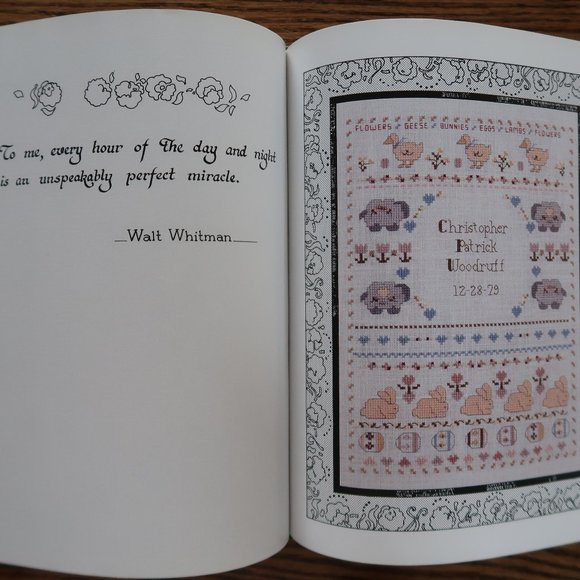 To me, every hour of The day and night
is an unspeakably perfect miracle.
Walt Whitman
FLOWERS GEESE BUNNIES EGGS LAMBS FLOWERS
Christopher
Patrick
Woodruff
12-28-79